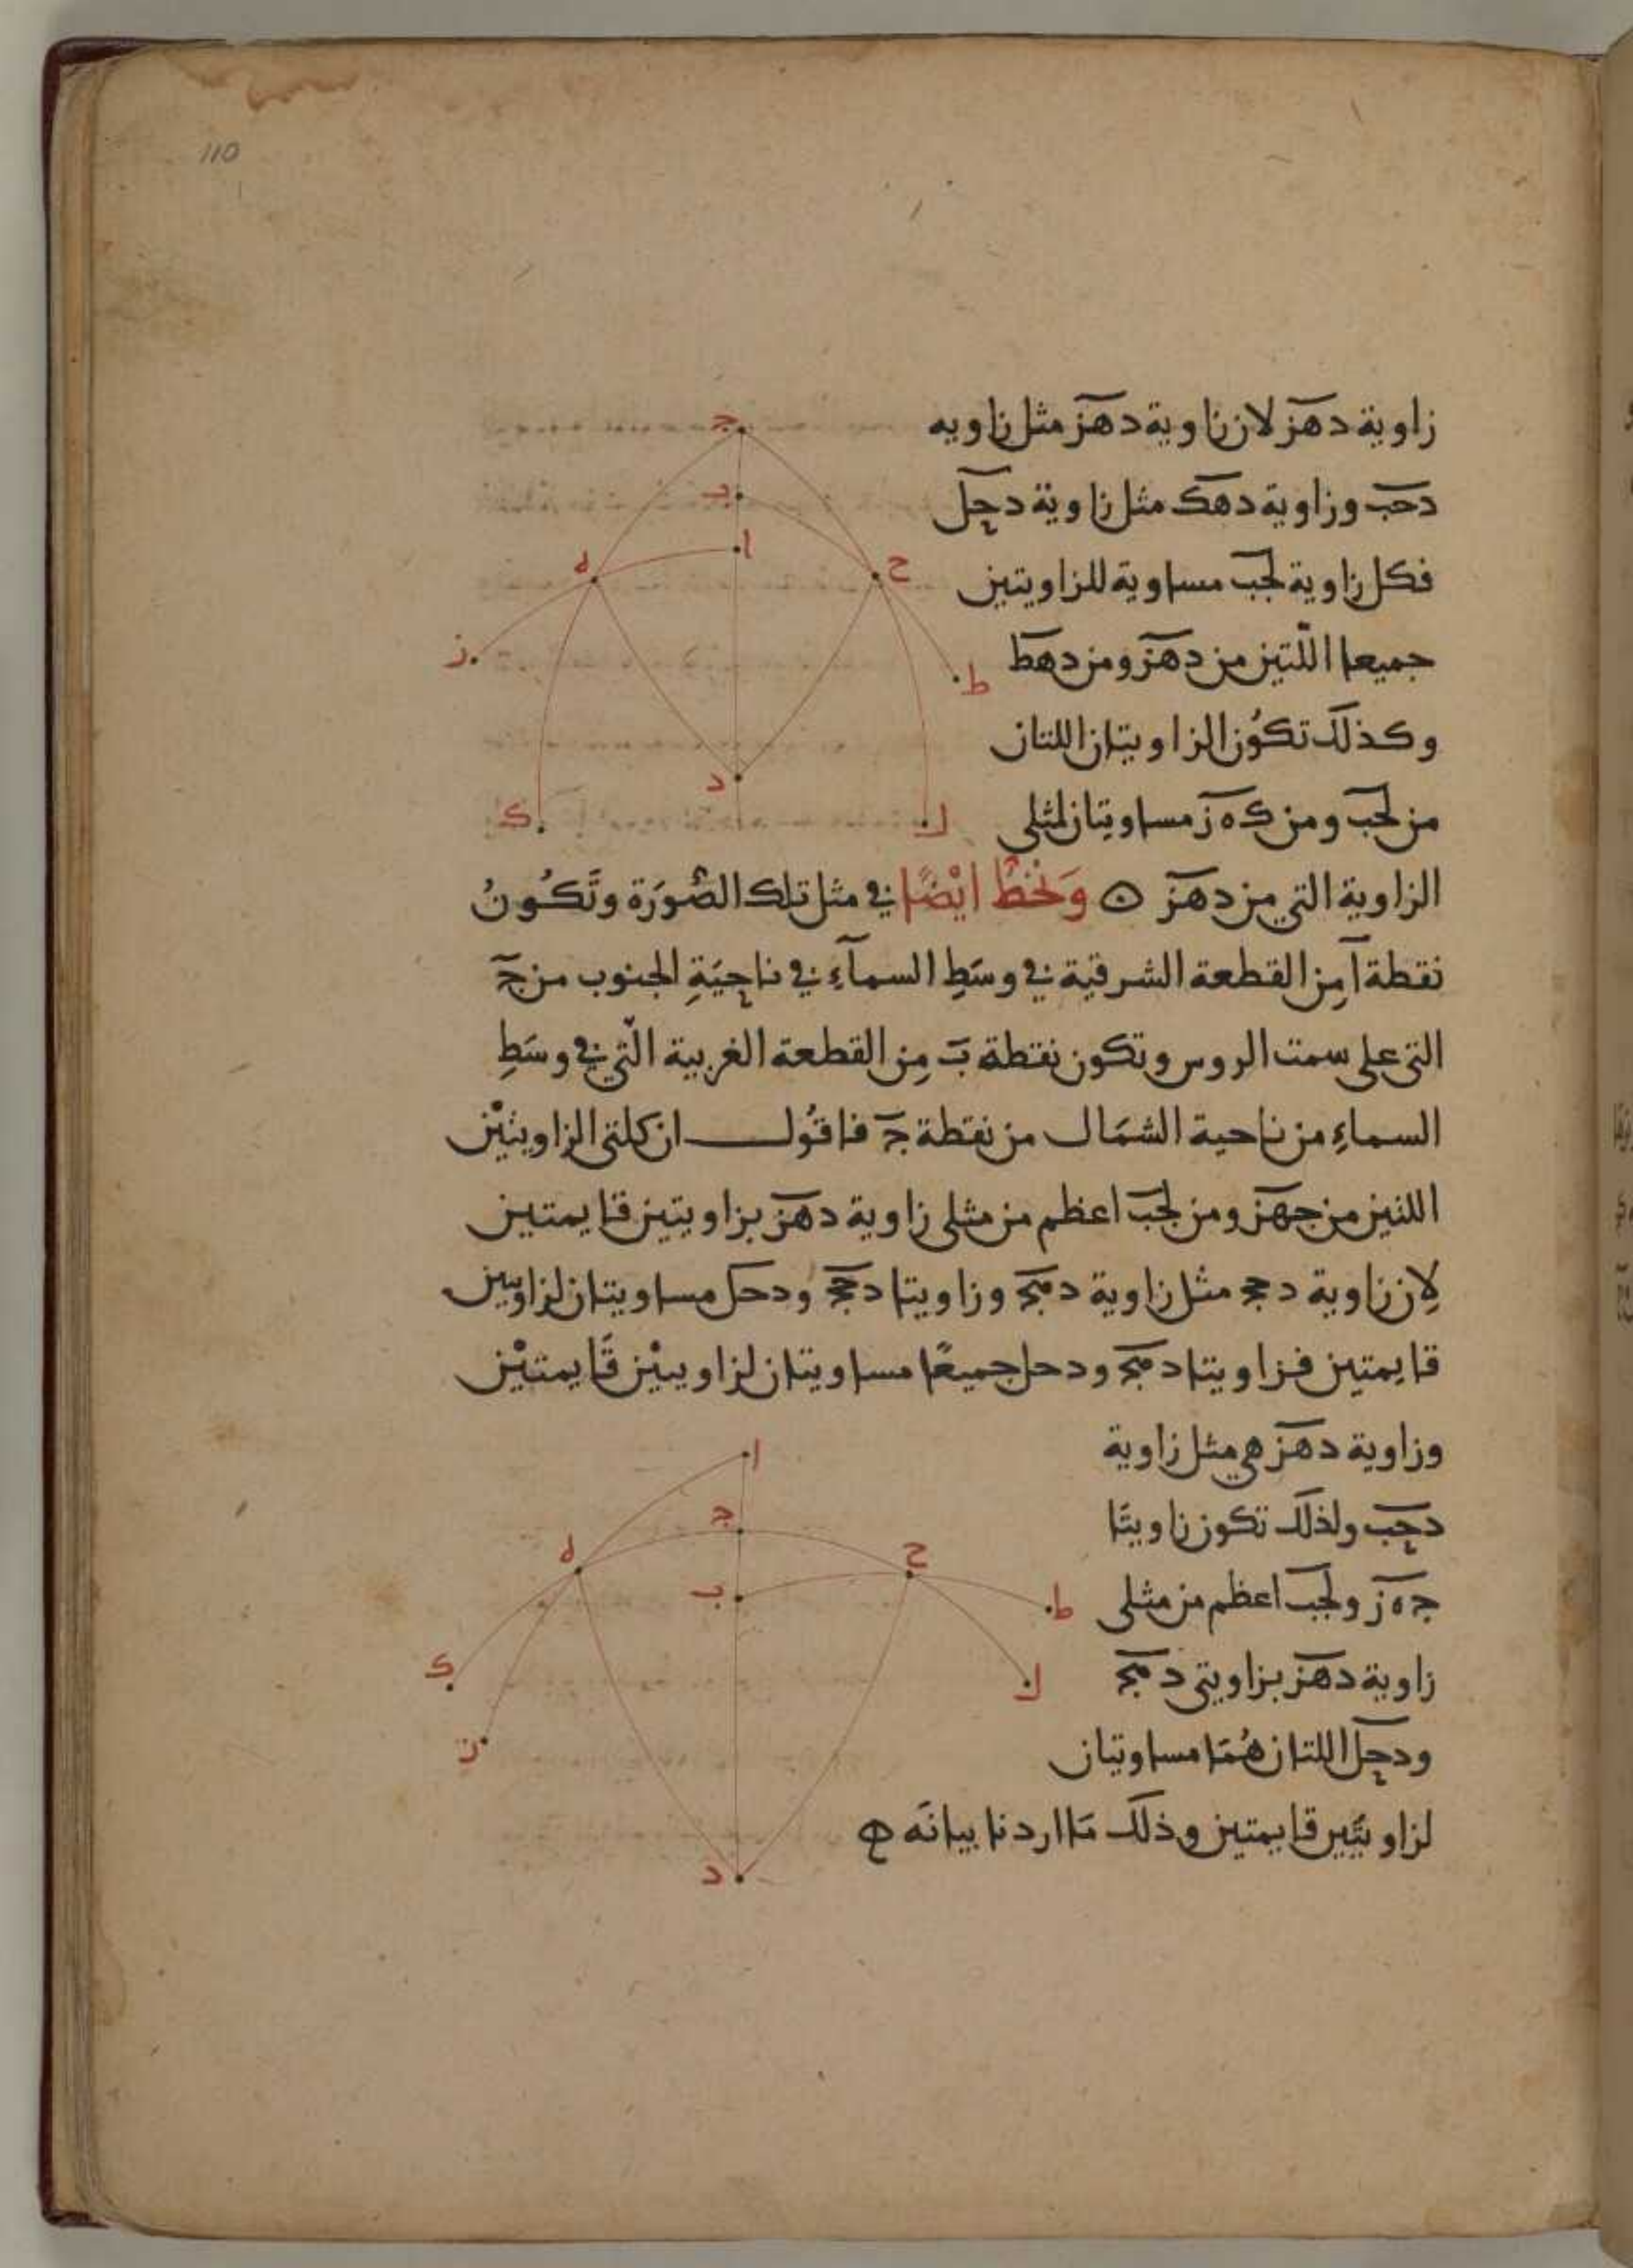 110
زاوية دهز لان زاوية دهز مثل زاويه
دحب وزاوية دهك مثل زاوية دحل
فكل زاوية لحب مساوية للزاويتين
جميعا اللتين من دهز ومن دهط
وكذلك تكون الزاويتان اللتان
من لحب ومن كه ز مساويتان لمثلى
الزاوية التي من دهز ه وَنخطُّ ايْضًا في مثل تلك الصُّورَة وتَكُونُ
نقطة ا مِن القطعة الشرقية في وسَطِ السمآءِ في ناحِيَةِ الجنوب من ج
التى على سمت الروس وتكون نقطة ب مِن القطعة الغربية الّتي في وسَطِ
السماءِ من ناحية الشمَال من نقطة ج فاقُول ان كلتى الزاويتيْن
اللتين من جهز ومن لحب اعظم من مثلى زاوية دهز بزاويتين قايمتين
لِان زاوية دحج مثل زاوية دهج وزاويتا دحج ودحل مساويتان لزاويتين
قايمتين فزاويتا دهج ودحل جميعًا مساويتان لزاويتيْن قَايمتيْن
وزاوية دهز هي مثل زاوية
دحب ولذلك تكون زاويتَا
جه ز ولحب اعظم من مثلى
زاوية دهز بزاويتى دهج
ودحل اللتان هُمَا مساويتان
لزاويتَين قايمتين وذلك مَا اردنا بيانَه
ج
ب
ا
ه
ح
ز
ط
د
ك
ل
ا
ج
ه
ح
ب
ط
ك
ل
ز
د